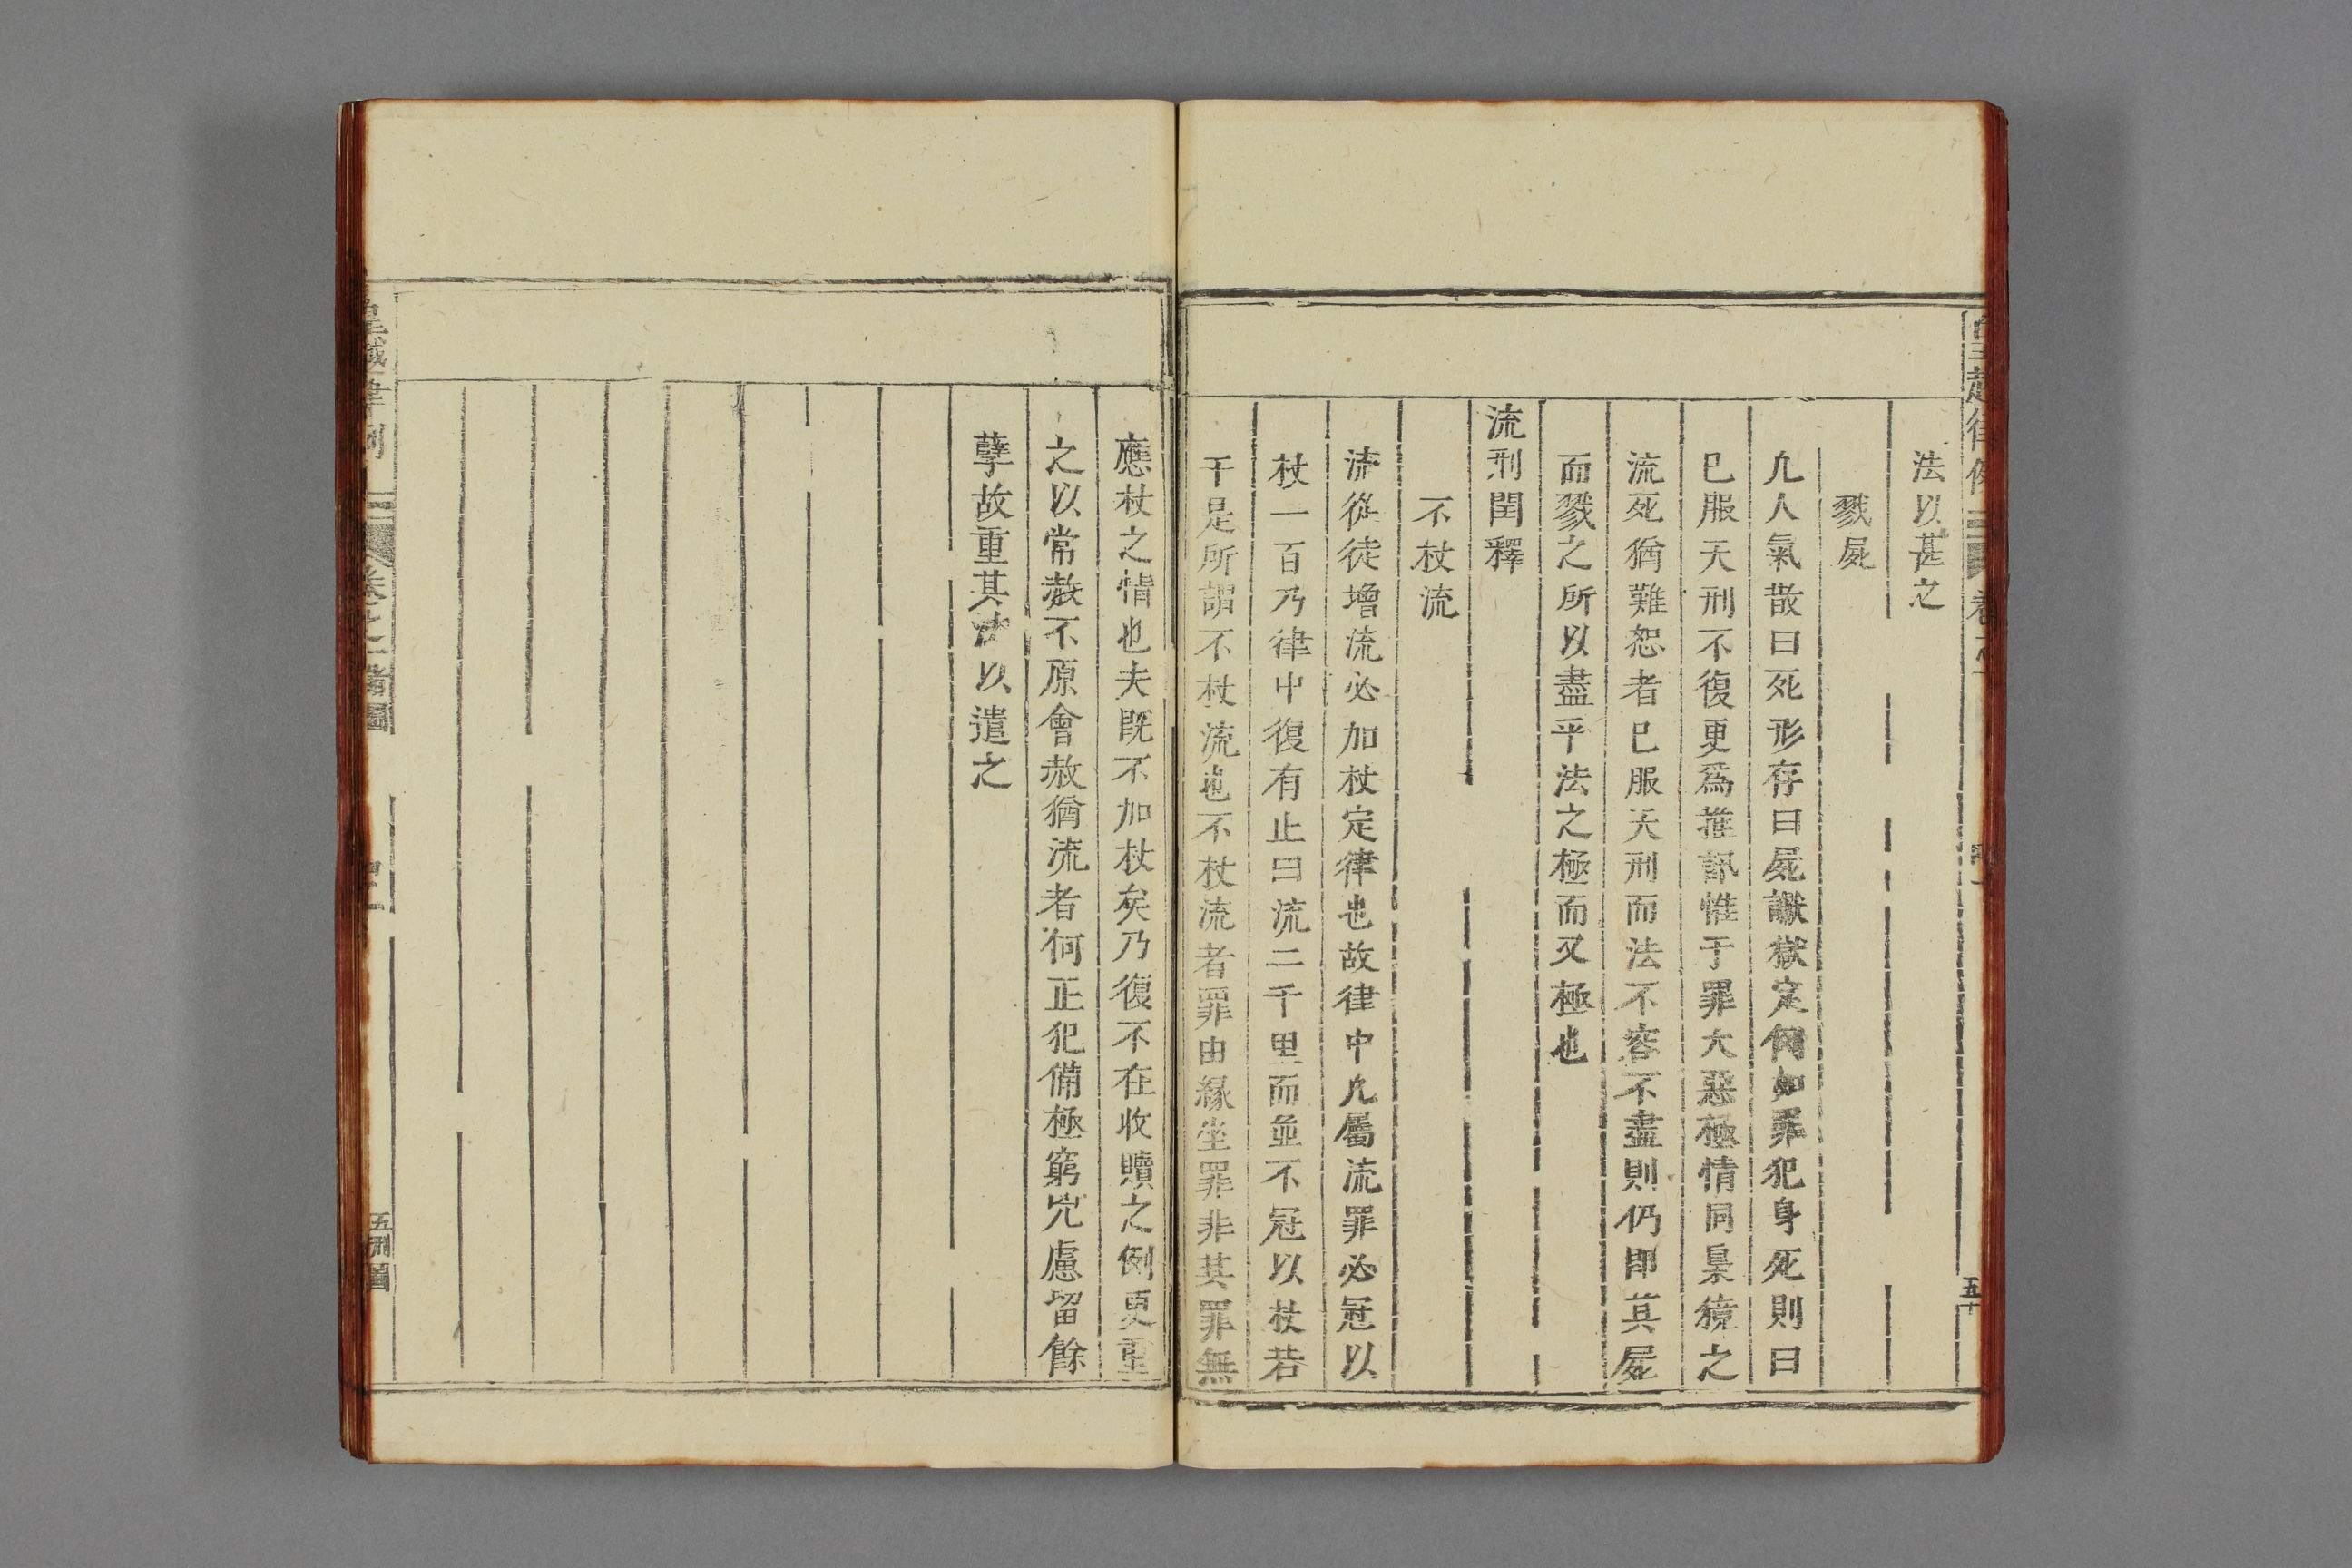 皇越律例
卷之一
五十
法以甚之
戮屍
凢人氣散曰死形存曰屍讞獄定例如罪犯身死則曰
巳服天刑不復更爲推訊惟于罪大惡極情同梟獍之
流死猶難恕者巳服天刑而法不容不盡則仍即其屍
而戮之所以盡乎法之極而又極也
流刑閏釋
不杖流
流從徒增流必加杖定律也故律中凢屬流罪必冠以
杖一百乃律中復有止曰流二千里而並不冠以杖若
干是所謂不杖流也不杖流者罪由緣坐罪非其罪無
應杖之情也夫既不加杖矣乃復不在收贖之例更重
之以常赦不原會赦猶流者何正犯備極窮兇慮留餘
孽故重其法以遣之
皇越律例
卷之一 諸圖
五刑圖